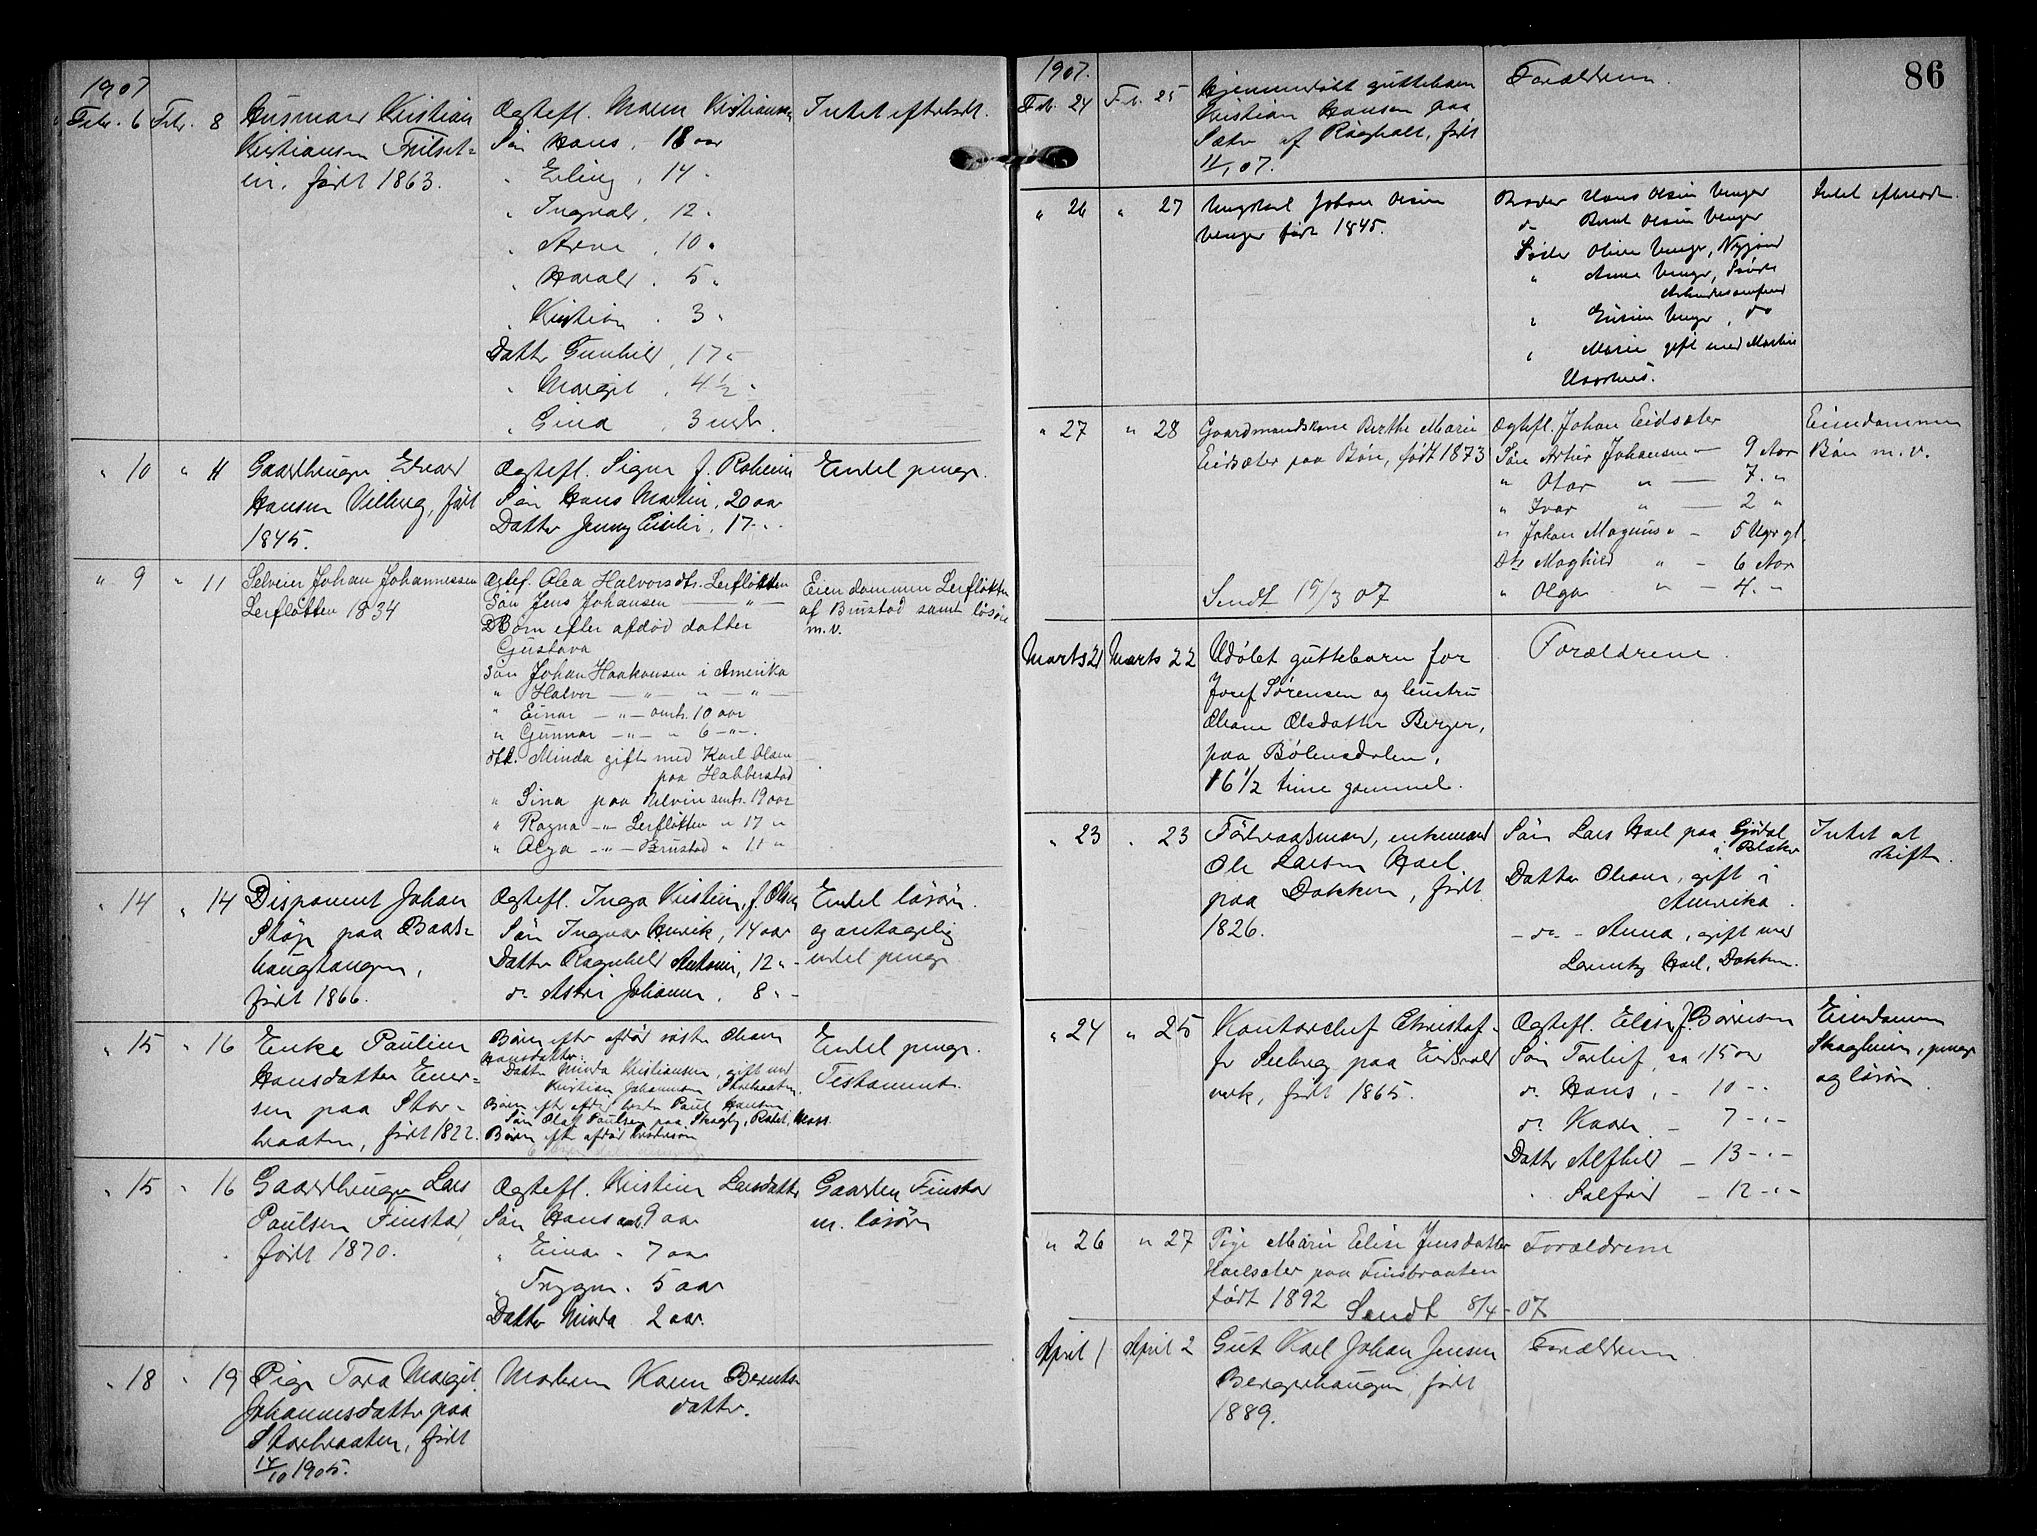 1907
Febr. 6 Febr. 8 Husmand Kristian Ægtefl. Maren Kristiansen Intet efterladt.
Kristiansen Søn Hans, 18 aar
født 1863. " Erling, 14 "
" Ingvald, 12 "
" Arne, 10 "
" Harald, 5 "
" Kristian, 3 "
Datter Gunhild, 17 "
" Margit, 4 1/2 "
" Gina, 3 mdr.
" 10 " 11 Gaardbruger Edvard Ægtefl. Signe f. Endel penge.
Hansen Vilberg, født Søn Hans Martin, 20 aar
1845. Datter Jenny Emilie, 17 "
" 9 " 11 Selveier Johan Johannessen Ægtef. Olea Halvorsdtr. Lerfløtten Eiendommen Lerfløtten
Lerfløtten 1834 Søn Jens Johansen — " — af Brustad samt løsøre
Børn efter afdød datter m.v.
Gustava
Søn Johan Haakonsen i Amerika
" Halvor — " — " — " —
" Einar — " — omtr. 10 aar
" Gunnar — " — " 6 — " —
dtr. Minda gift med Karl Olsen
paa Habberstad
" Sina paa omtr. 19 aar
" Ragna — " — Lerfløtten " 17 "
" Olga — " — Brustad " 11 "
" 14 " 14 Disponent Johan Ægtefl. Inga Kristine, f. Olsen Endel løsøre
Støp paa Baads- Søn Ingvar Henrik, 14 aar og antagelig
haugtangen, Datter Ragnhild Antonie, 12 " endel penge
født 1866. do. Astri Johanne, 8 "
" 15 " 16 Enke Pauline Børn efter afdød søster Oleane Endel penge.
Hansdatter Ener- Hansdatter: Testament.
sen paa Stor- Datter Minda Kristiansen, gift med
braaten, født 1822. Kristian Johannesen Storbraaten
Børn efter afdød broder Paul Hansen
Søn Olaf Paulsen paa Skogly, Moss
Børn efter afdød
" 15 " 16 Gaardbruger Lars Ægtefl. Kristine Larsdatter Gaarden Finstad
Paulsen Finstad, Søn Hans 9 aar m. løsøre
født 1870. " Einar " 7 aar
" Trygve " 5 aar
Datter Minda 2 aar.
" 18 " 19 Pige Tora Margit Moderen Karen Bernts-
Johannesdatter paa datter.
Storbraaten, født
14/10 1905.
86
1907.
Feb. 24 Feb. 25 Hjemmedøbt guttebarn Forældrene.
Kristian Hansen paa
Sætre af Raaholt, født
11/1 07.
" 26 " 27 Ungkarl Johan Olsen Broder Hans Olsen Venger Intet efterladt.
Venger født 1845. do Bernt Olsen Venger
Søster Oline Venger,
" Anne Venger,
" Venger, do
" Marie gift med Martin
" 27 " 28 Gaardmandskone Berthe Marie Ægtefl. Johan Eidsæter Eiendommen
Eidsæter paa Bøn, født 1873 Søn Artur Johansen — 9 Aar Bøn m. v.
" Otar " — 7 "
" Ivar " — 2 "
" Johan Magnus " — 5 Uger gl.
Dtr Maghild " — 6 Aar
Sendt 15/3 07 " Olga " — 4 "
Marts 21 Marts 22 Udøbt guttebarn for Forældrene.
Josef Sørensen og hustru
Oleane Olsdatter Berger,
paa Bølensdalen,
16 1/2 time gammel.
" 23 " 23 Føderaadsmand, enkemand Søn Lars Hael paa Gjødal Intet at
Ole Larsen Hael i Blaker skifte.
paa Dokken, født Datter Oleane, gift i
1826. Amerika.
— do — Anna, gift med
Lorentz Hael, Dokken.
" 24 " 25 Kontorchef Christof- Ægtefl. Elise f. Børresen Eiendommen
fer Seeberg paa Eidsvold Søn Torleif, ca 15 aar Skogheim, penge
verk, født 1865. do. Hans, — 10 — og løsøre
do. Kaare — 7 — " —
Datter Alfhild — 13 — " —
" Solfrid — 12 — " —
" 26 " 27 Pige Marie Elise Jensdatter Forældrene
Haelsæter paa Finsbraaten
født 1892 Sendt 8/4 - 07
April 1 April 2 Gut Karl Johan Jensen Forældrene
Bergerhaugen, født
1889.